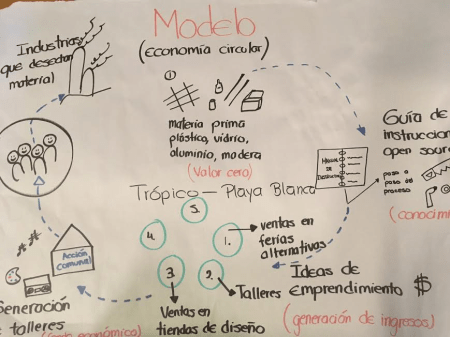 Modelo
(economía circular)
Industrias
que desechan
material
1
materia prima
plástico, vidrio,
aluminio, madera
(Valor cero)
Guía de
instruccion
open sour
paso a
paso del
proceso
(conocim
Manual
de
Trópico — Playa Blanca
5.
4.
1.
3
2.
ventas en
ferias
alternativas
Acción
Comunal
Ideas de
emprendimiento $
(generación de ingresos)
Talleres
Ventas en
tiendas de diseño
Generación
e talleres
económico)